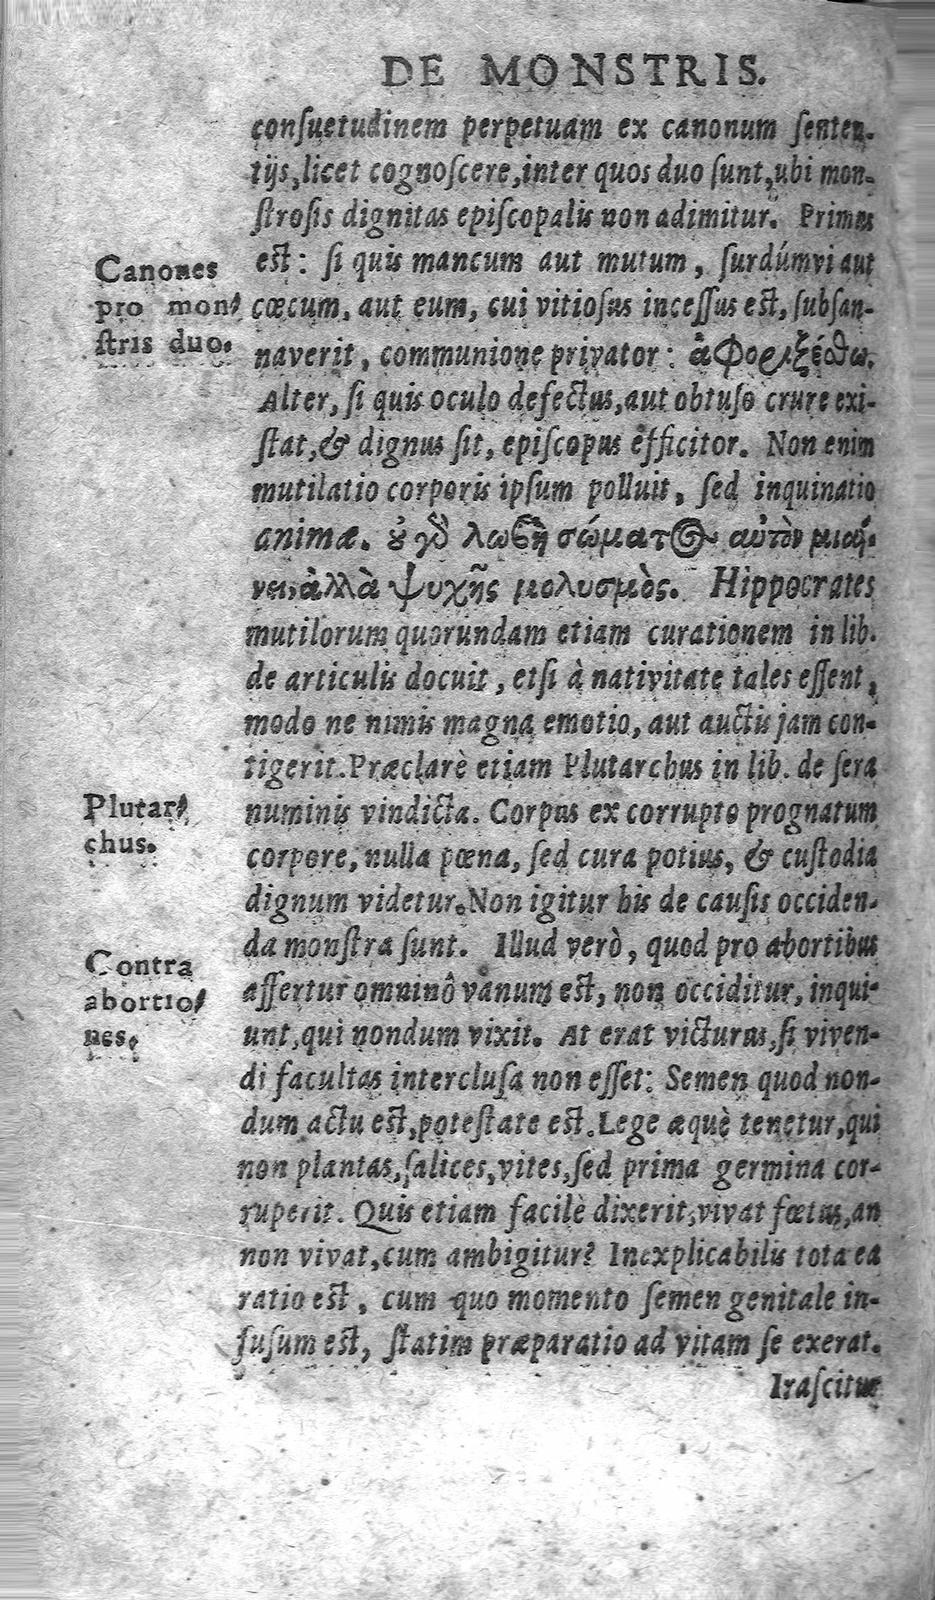 DE MONSTRIS.
conſuetudinem perpetuam ex canonum ſenten-
tijs, licet cognoſcere, inter quos duo ſunt, ubi mon-
ſtroſis dignitas epiſcopalis non adimitur. Primus
est: ſi quis mancum aut mutum, ſurdúmvi aut
cœcum, aut eum, cui vitioſus inceſſus est, ſubſan-
naverit, communione privator: ἀφοριζέσθω.
Alter, ſi quis oculo defectus, aut obtuſo crure exi-
ſtat, & dignus ſit, epiſcopus efficitor. Non enim
mutilatio corporis ipſum polluit, ſed inquinatio
animæ. ȣ γδ λωβὴ σώματος αὐτὸν μιαί-
νει, ἀλλὰ ψυχῆς μολυσμὸς. Hippocrates
mutilorum quorundam etiam curationem in lib.
de articulis docuit, etſi à nativitate tales eſſent,
modo ne nimis magna emotio, aut auctis jam con-
tigerit. Præclarè etiam Plutarchus in lib. de ſera
numinis vindicta. Corpus ex corrupto prognatum
corpore, nulla pœna, ſed cura potius, & cuſtodia
dignum videtur. Non igitur his de cauſis occiden-
da monſtra ſunt. Illud verò, quod pro abortibus
aſſertur omninô vanum est, non occiditur, inqui-
unt, qui nondum vixit. At erat victurus, ſi viven-
di facultas intercluſa non eſſet: Semen quod non-
dum actu est, poteſtate est. Lege æquè tenetur, qui
non plantas, ſalices, vites, ſed prima germina cor-
ruperit. Quis etiam facilè dixerit, vivat fœtus, an
non vivat, cum ambigitur? Inexplicabilis tota ea
ratio est, cum quo momento ſemen genitale in-
fuſum est, ſtatim præparatio ad vitam ſe exerat.
Iraſcitur
Canones
pro mon-
ſtris duo.
Plutar-
chus.
Contra
abortio-
nes.